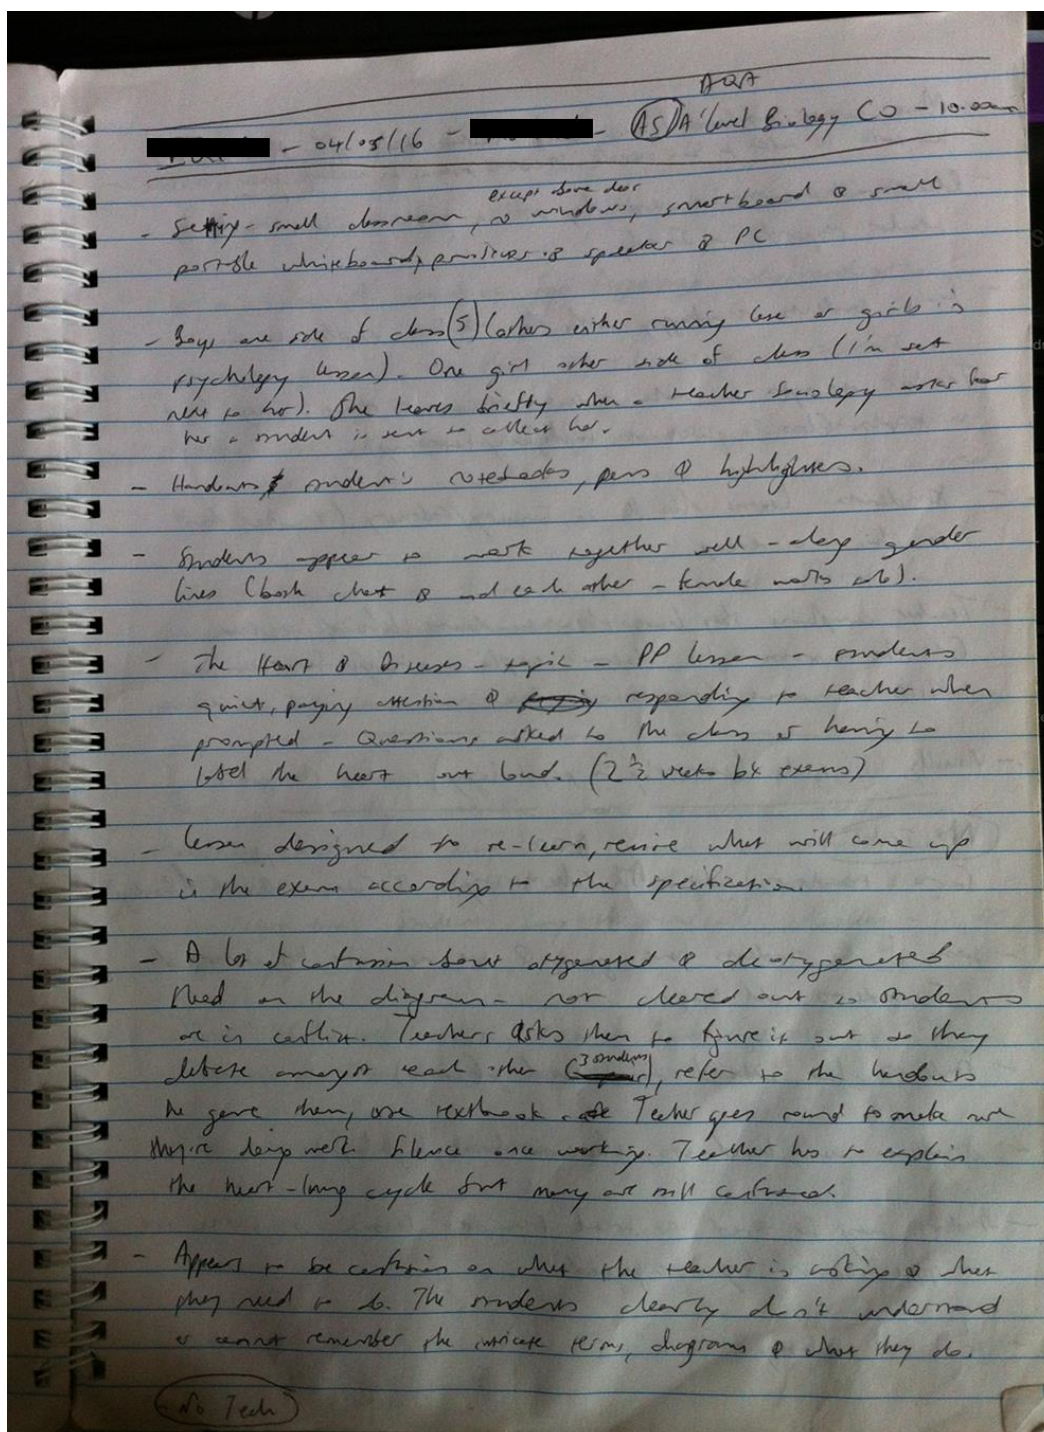 AQA
- 04/05/16 - - AS/A'level Biology CO - 10.00am
except above door
- Setting - small classroom, no windows, smartboard & small
portable whiteboard, & speaker & PC
- Boys one side of class (5) (others either running late or girls in
psychology lesson). One girl other side of class (I'm sat
next to her). She leaves briefly when a teacher sociology asks for
her a student is sent to collect her.
- Handouts, student's notebooks, pens & highlighters.
- Students appear to work together well - along gender
lines (both chat & aid each other - female works solo).
- The Heart & Diseases - topic - PP lesson - students
quiet, paying attention & responding to teacher when
prompted - Questions asked to the class & having to
label the heart out loud. (2 ½ weeks b4 exams)
- Lesson designed to re-learn, revise what will come up
in the exam according to the specification.
- A lot of confusion about oxygenated & deoxygenated
blood on the diagram - not cleared out so students
are in conflict. Teacher asks them to figure it out so they
3 students
debate amongst each other ( ), refer to the handouts
he gave them, one textbook. Teacher goes round to make sure
they're doing work. Silence once working. Teacher has to explain
the heart-lung cycle but many are still confused.
- Appears to be confusion on what the teacher is asking & what
they need to do. The students clearly don't understand
or cannot remember the intricate terms, diagrams & what they do.
No Tech